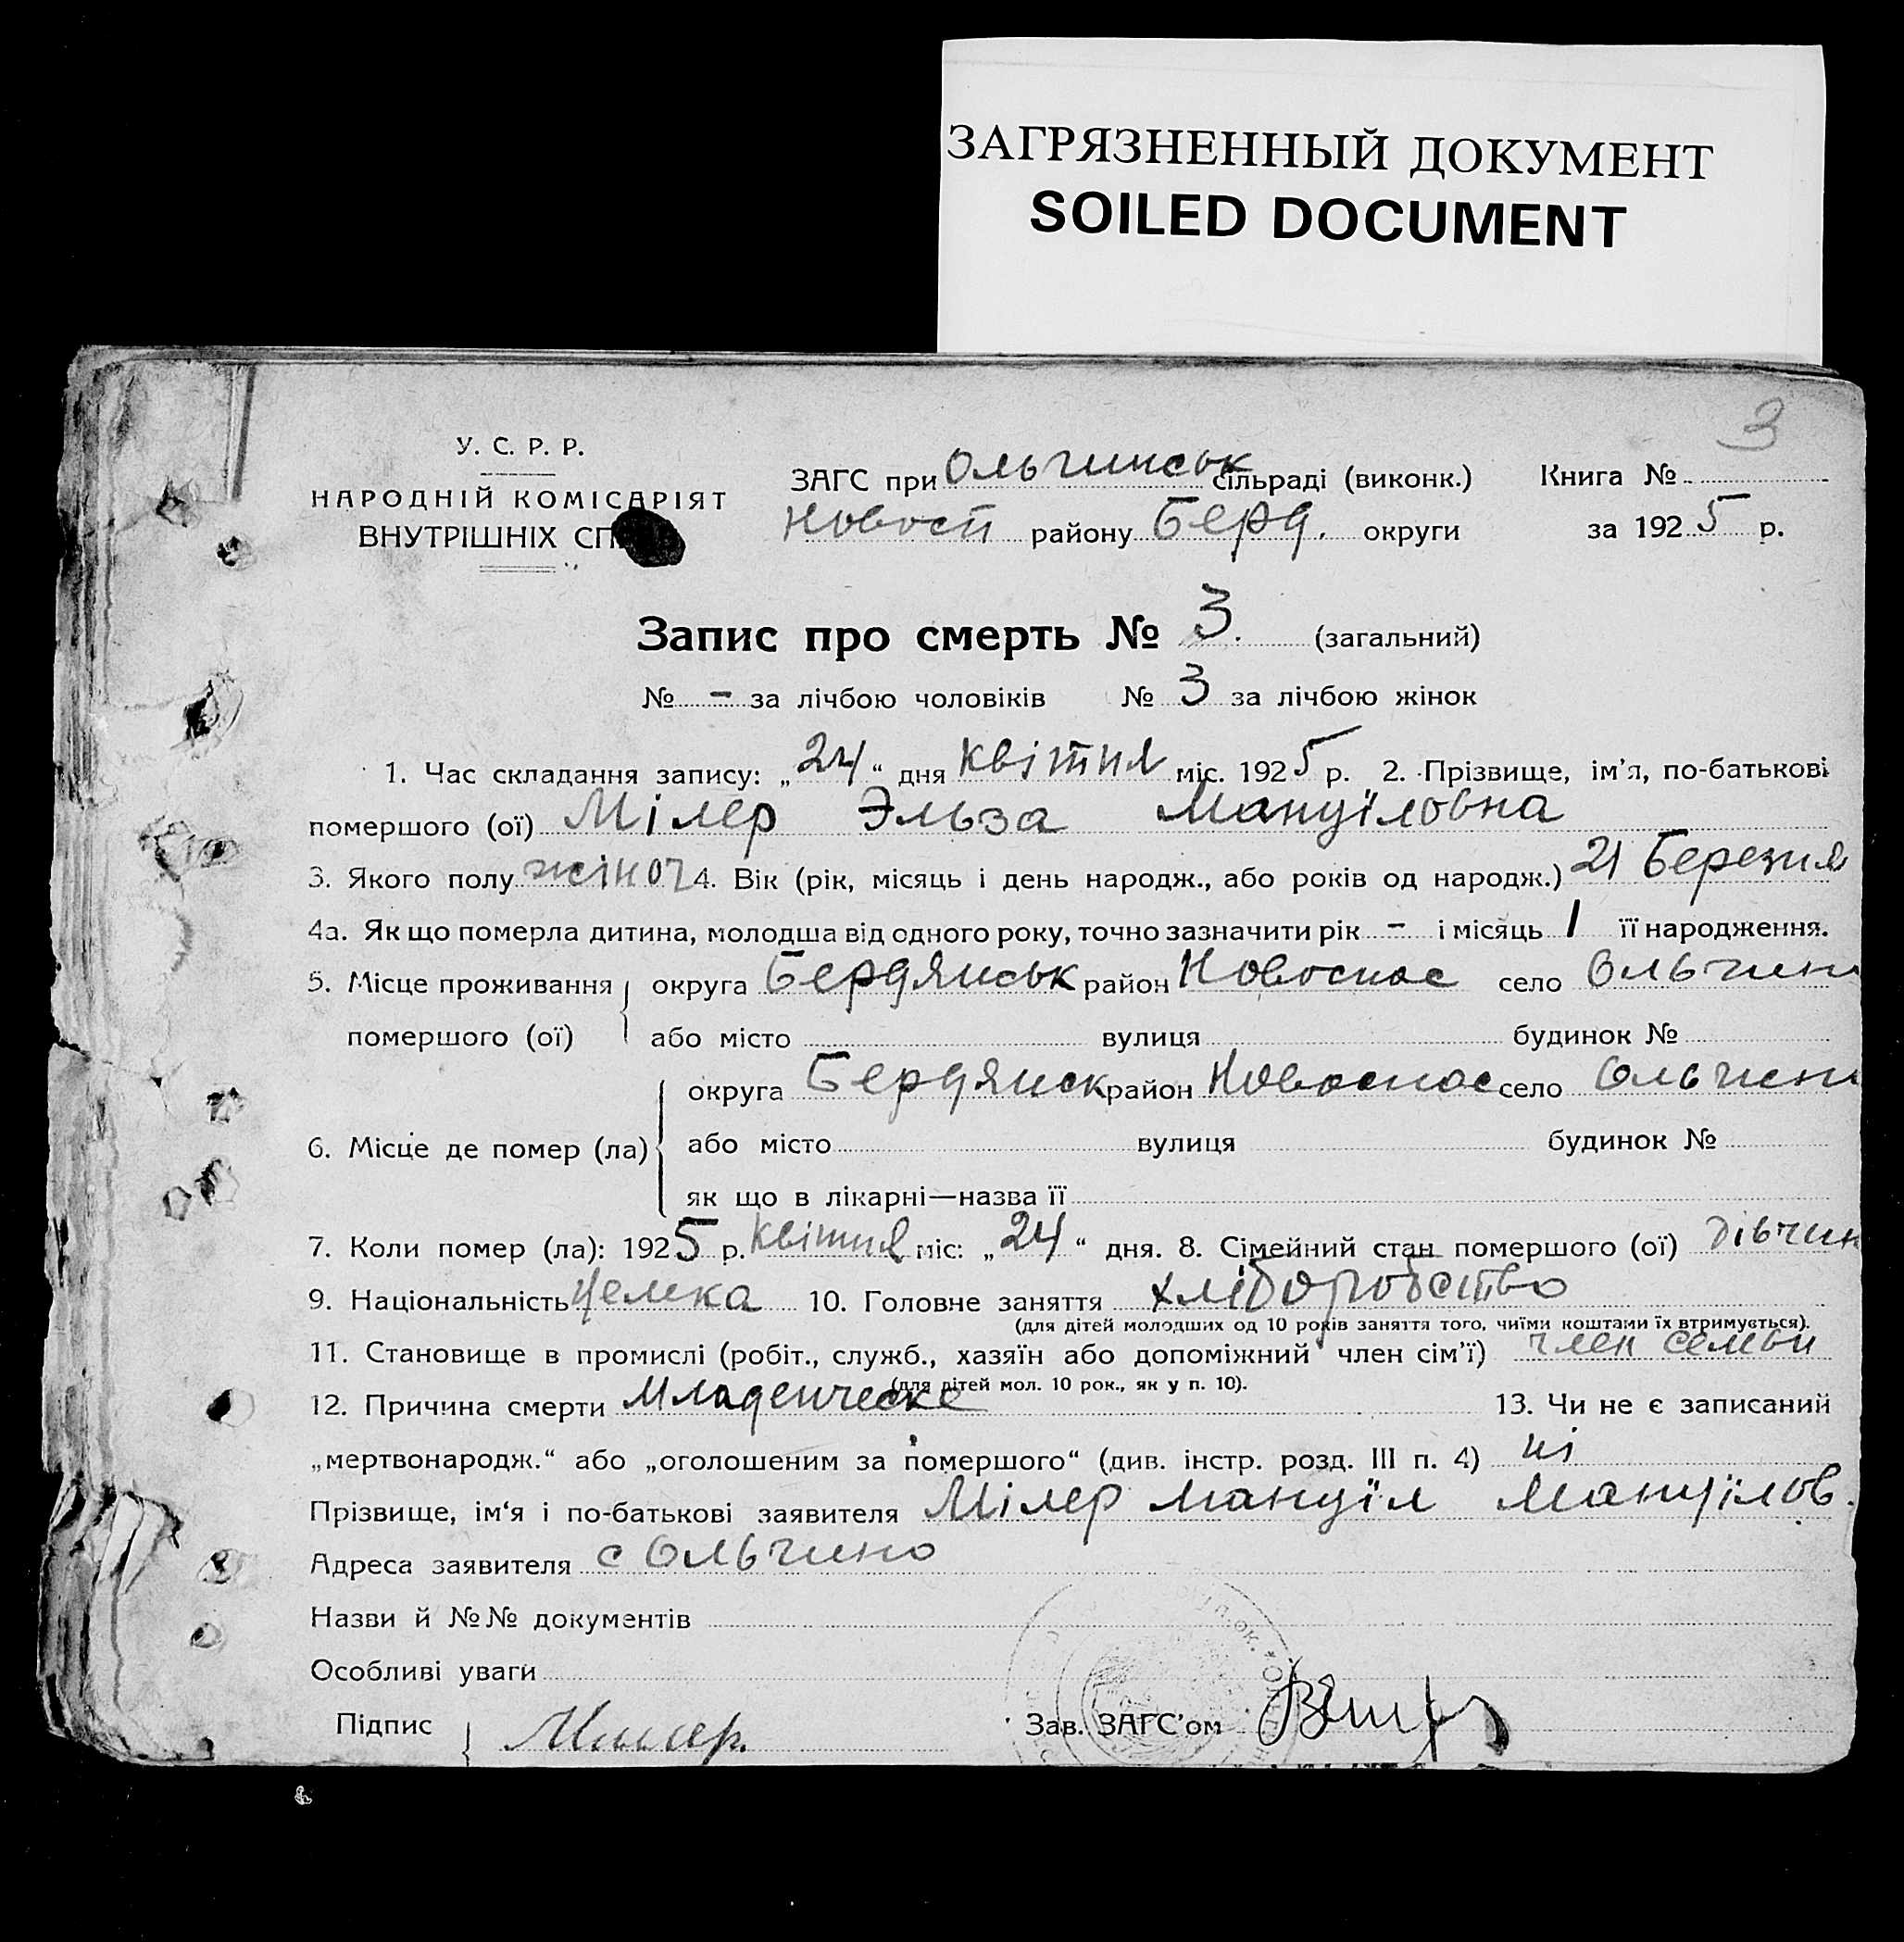 ЗАГРЯЗНЕННЫЙ ДОКУМЕНТ
SOILED DOCUMENT
3
У. С. Р. Р.
НАРОДНІЙ КОМІСАРІЯТ
ВНУТРІШНІХ СП
ЗАГС при Ольгинськ сільраді (виконк.) Книга №
Новосп району Берд. округи за 1925 р.
Запис про смерть № 3. (загальний)
№ - за лічбою чоловіків № 3 за лічбою жінок
1. Час складання запису: „24“ дня квітня міс. 1925 р. 2. Прізвище, ім'я, по-батькові
помершого (ої) Мілер Эльза Мануїловна
3. Якого полу жіноч 4. Вік (рік, місяць і день народж., або років од народж.) 21 Березня
4а. Як що померла дитина, молодша від одного року, точно зазначити рік - і місяць 1 її народження.
5. Місце проживання помершого (ої) округа Бердянськ район Новоспас село Ольгин
або місто вулиця будинок №
6. Місце де помер (ла) округа Бердянск район Новоспас село Ольгин
або місто вулиця будинок №
як що в лікарні—назва її
7. Коли помер (ла): 1925 р. квітня міс: „24“ дня. 8. Сімейний стан помершого (ої) дівчин
9. Національність немка 10. Головне заняття хліборобство
(для дітей молодших од 10 років заняття того, чиїми коштами їх втримується).
11. Становище в промислі (робіт., служб., хазяїн або допоміжний член сім'ї) член семьи
(для дітей мол. 10 рок., як у п. 10).
12. Причина смерти Младенческе 13. Чи не є записаний
„мертвонародж.“ або „оголошеним за помершого“ (див. інстр. розд. III п. 4) ні
Прізвище, ім'я і по-батькові заявителя Мілер Мануїл Мануїлов.
Адреса заявителя с Ольгино
Назви й №№ документів
Особливі уваги
Підпис Миллер. Зав. ЗАГС'ом